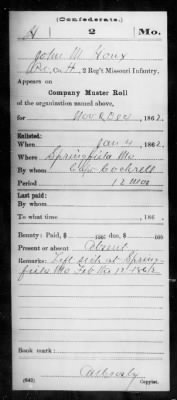 (Confederate.)
H 2 Mo.
John M. Houx
Co. H, 2 Reg't Missouri Infantry.
Appears on
Company Muster Roll
of the organization named above,
for Nov & Dec, 1862.
Enlisted:
When Jany, 1862.
Where Springfield Mo
By whom Capt Cockrell
Period 12 mos
Last paid:
By whom
To what time , 186 .
Bounty: Paid, $ 100; due $ 100
Present or absent Absent
Remarks: Left sick at Spring-
field Mo Feb the 12 1862
Book mark:
(642) Copyist.